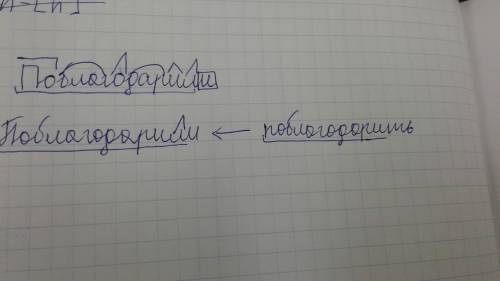 Поблагодарили
Поблагодарили ← поблагодарить